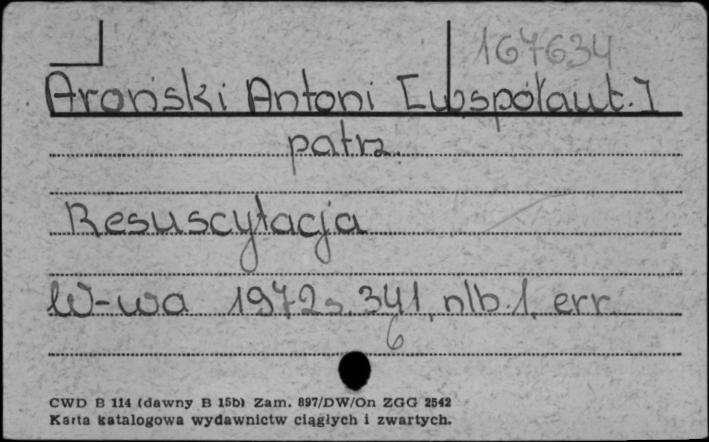 167634
Aroński Antoni [współaut.]
patrz.
Resuscytacja
W-wa 1972 s. 341, nlb. 1, err.
6
CWD B 114 (dawny B 15b) Zam. 897/DW/On ZGG 2542
Karta katalogowa wydawnictw ciągłych i zwartych.